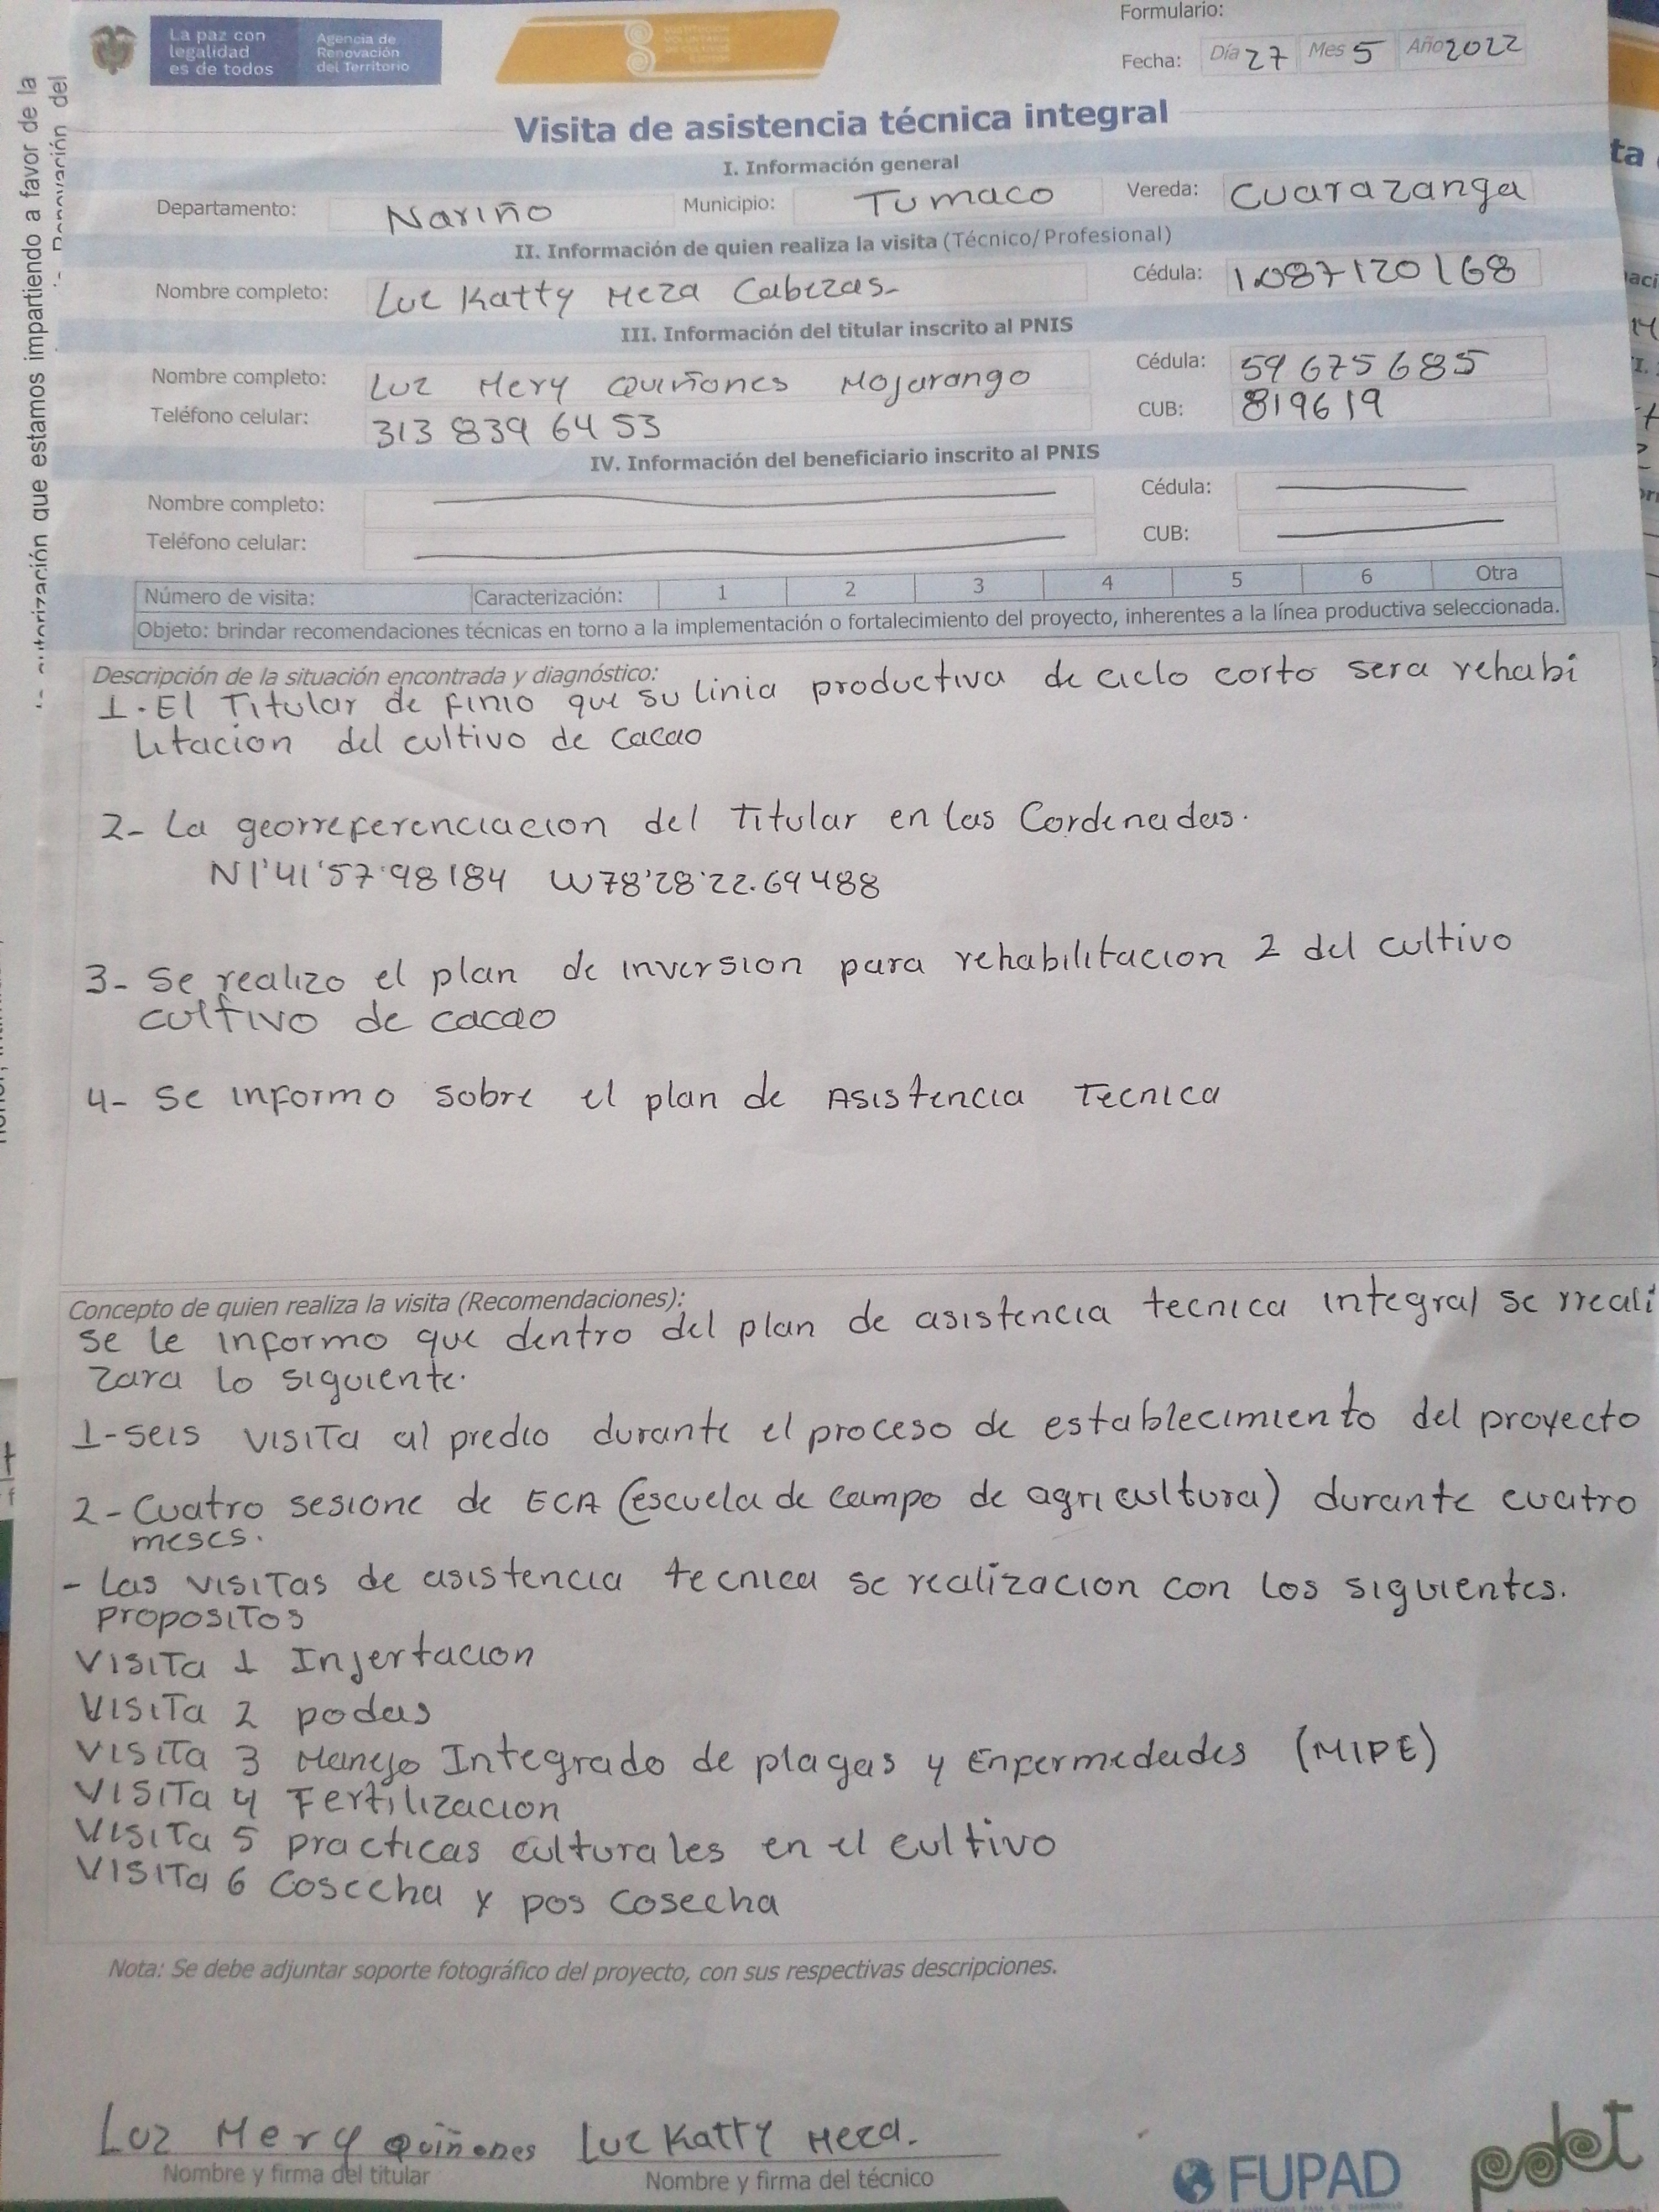 La paz con
legalidad
es de todos
Agencia de
Renovación
del Territorio
SUSTITUCIÓN
VOLUNTARIA
DE CULTIVOS
ILÍCITOS
Formulario:
Fecha: Día 27 Mes 5 Año 2022
Visita de asistencia técnica integral
I. Información general
Departamento: Nariño Municipio: Tumaco Vereda: Cuarazanga
II. Información de quien realiza la visita (Técnico/Profesional)
Nombre completo: Luz Katty Meza Cabezas- Cédula: 1.087120168
III. Información del titular inscrito al PNIS
Nombre completo: Luz Mery Quiñones Mojarango Cédula: 59675685
Teléfono celular: 313 839 64 53 CUB: 819619
IV. Información del beneficiario inscrito al PNIS
Nombre completo: Cédula:
Teléfono celular: CUB:
Número de visita: Caracterización: 1 2 3 4 5 6 Otra
Objeto: brindar recomendaciones técnicas en torno a la implementación o fortalecimiento del proyecto, inherentes a la línea productiva seleccionada.
Descripción de la situación encontrada y diagnóstico:
1. El Titular de finio que su linia productiva de ciclo corto sera rehabi
litacion del cultivo de cacao
2- La georreferenciacion del Titular en las Cordenadas.
N1'41'57.98184 W78'28'22.69488
3- Se realizo el plan de inversion para rehabilitacion 2 del cultivo
cultivo de cacao
4- Se informo sobre el plan de Asistencia Tecnica
Concepto de quien realiza la visita (Recomendaciones):
se le informo que dentro del plan de asistencia tecnica integral se rreali
zara lo siguiente.
1-seis visita al predio durante el proceso de establecimiento del proyecto
2- Cuatro sesione de ECA (escuela de campo de agricultura) durante cuatro
meses.
- Las visitas de asistencia tecnica se realizacion con los siguientes.
propositos
Visita 1 Injertacion
Visita 2 podas
Visita 3 Manejo Integrado de plagas y Enfermedades (MIPE)
Visita 4 Fertilizacion
Visita 5 practicas culturales en el cultivo
Visita 6 Cosecha y pos cosecha
Nota: Se debe adjuntar soporte fotográfico del proyecto, con sus respectivas descripciones.
Luz Mery Quiñones Luz Katty Meza.
Nombre y firma del titular Nombre y firma del técnico
FUPAD
pdet
autorización que estamos impartiendo a favor de la
Renovación del